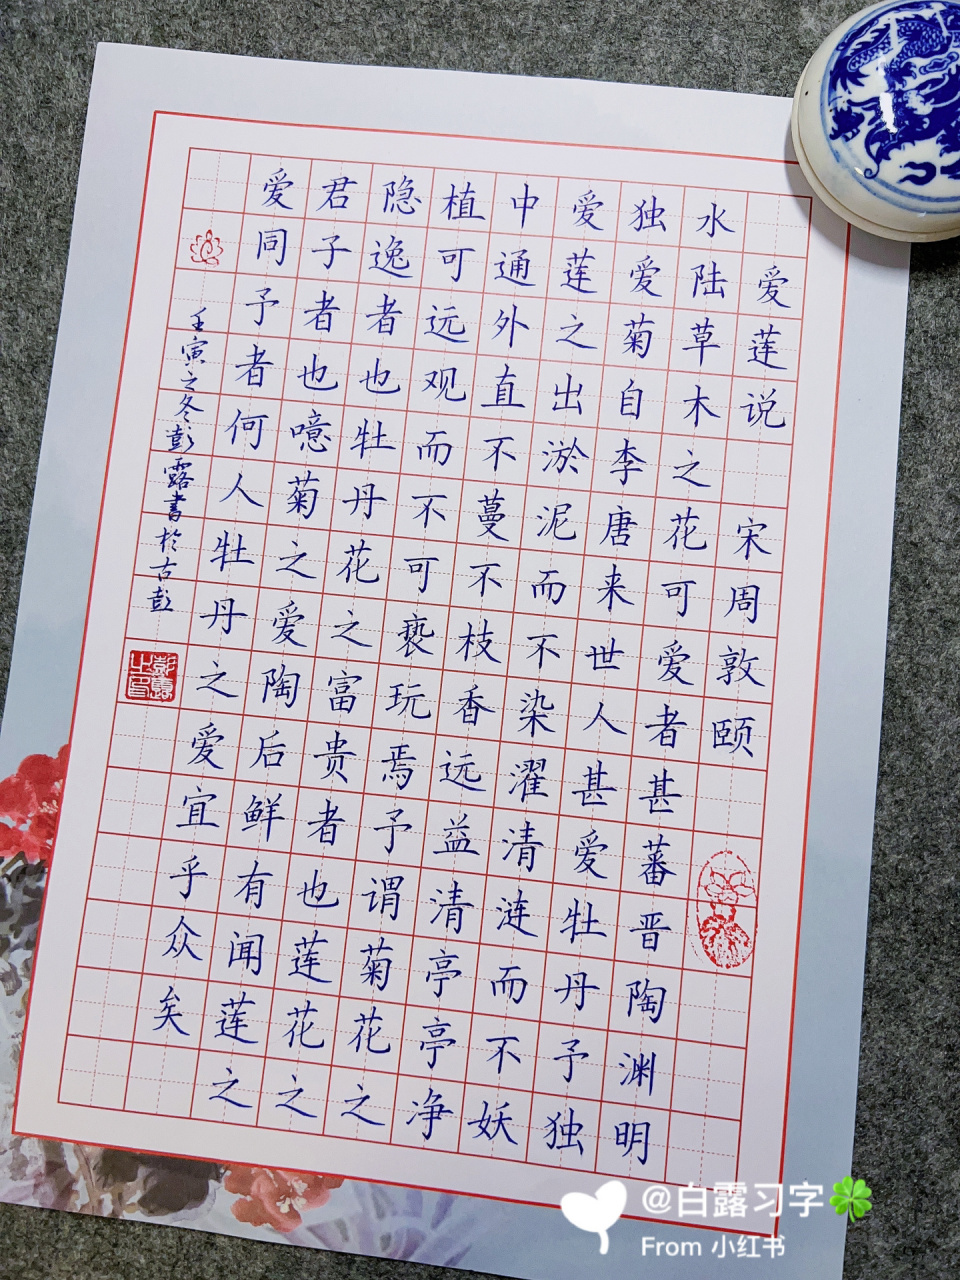 爱莲说 宋 周敦颐
水陆草木之花可爱者甚蕃晋陶渊明
独爱菊自李唐来世人甚爱牡丹予独
爱莲之出淤泥而不染濯清涟而不妖
中通外直不蔓不枝香远益清亭亭净
植可远观而不可亵玩焉予谓菊花之
隐逸者也牡丹花之富贵者也莲花之
君子者也噫菊之爱陶后鲜有闻莲之
爱同予者何人牡丹之爱宜乎众矣
壬寅之冬彭露书于古彭
彭露之印
@白露习字🍀
From 小红书